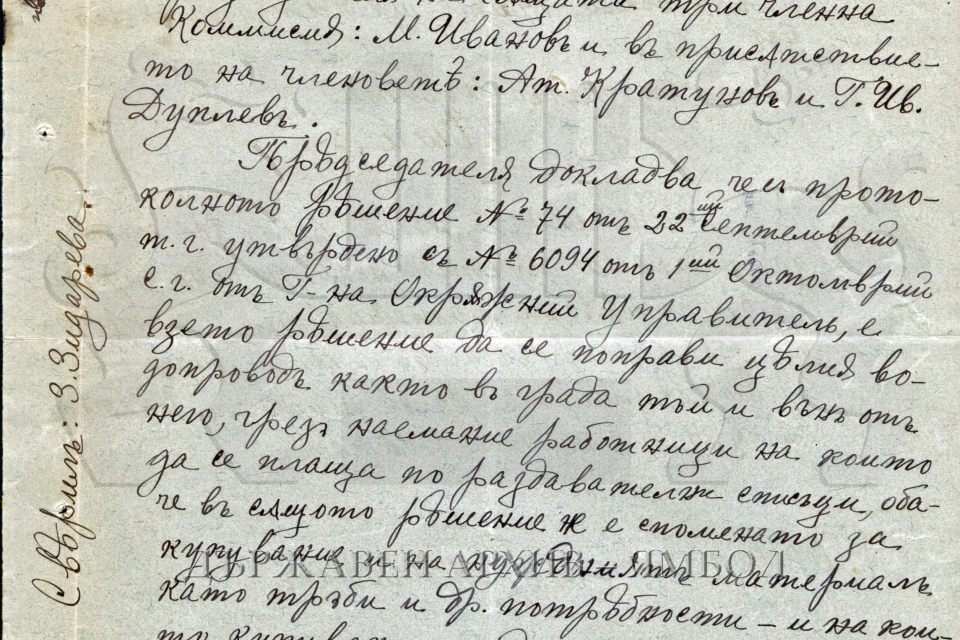 сѫщата три членна
Коммисия: М. Ивановъ и въ присѫтствие-
то на членоветѣ: Ат. Кратуновъ и Г. Ив.
Дуплевъ.
Прѣдседателя докладва че съ прото-
колното рѣшение № 74 отъ 22ий Септемврий
т. г. утвърдено съ № 6094 отъ 1ий Октомврий
с. г. отъ Г-на Окрѫжний Управитель, е
взето рѣшение да се поправи цѣлия во-
допроводъ както въ града тъй и вънъ отъ
него, чрезъ наемание работници на които
да се плаща по раздавателни списъци, оба-
че въ сѫщото рѣшение не е споменато за
купувание и на нуждниятъ материалъ
като трѫби и др. потрѣбности – и на кои-
то
Свѣрилъ: З. Зидарева.
ДЪРЖАВЕН АРХИВ - ЯМБОЛ